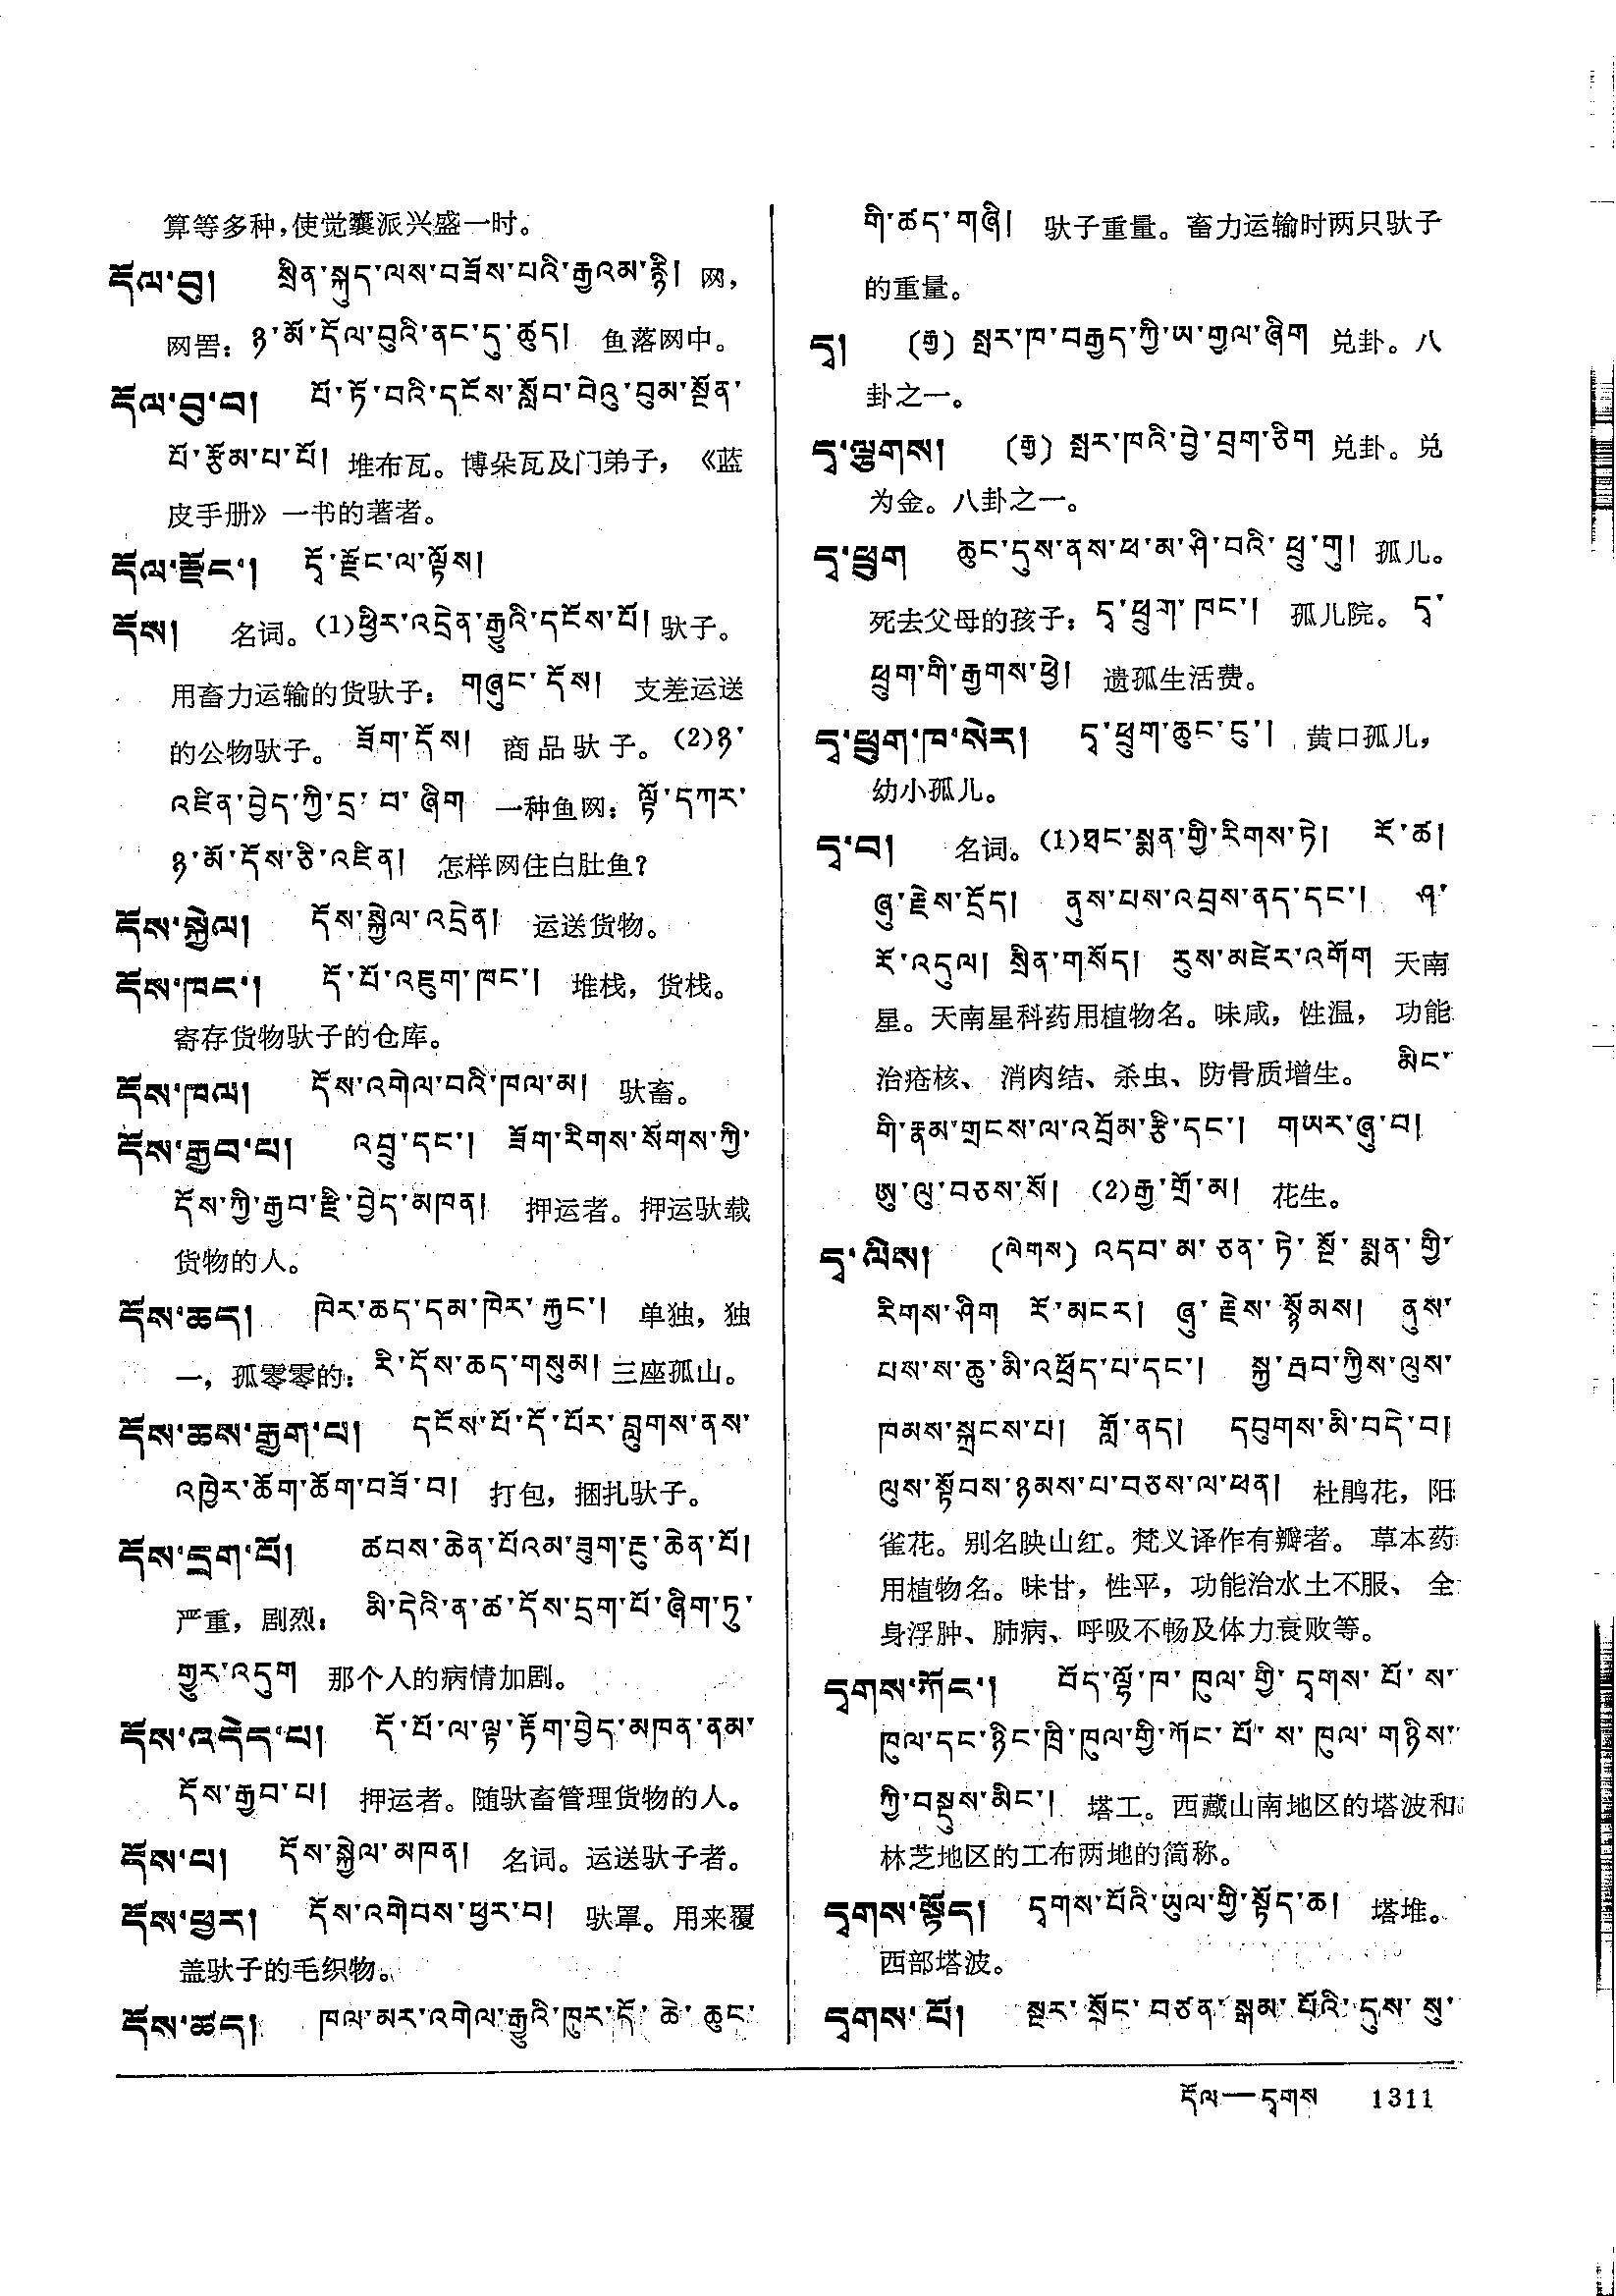 算等多种，使觉囊派兴盛一时。
དོལ་བུ། སྲིན་སྐུད་ལས་བཟོས་པའི་རྒྱའམ་རྙི། 网，
网罟：ཉ་མོ་དོལ་བུའི་ནང་དུ་ཚུད། 鱼落网中。
དོལ་བུ་བ། པོ་ཏོ་བའི་དངོས་སློབ་བེའུ་བུམ་སྔོན་
པོ་རྩོམ་པ་པོ། 堆布瓦。博朵瓦及门弟子，《蓝
皮手册》一书的著者。
དོལ་རྫོང་། དོ་རྫོང་ལ་ལྟོས།
དོས། 名词。(1)ཕྱིར་འདྲེན་རྒྱུའི་དངོས་པོ། 驮子。
用畜力运输的货驮子：གཞུང་དོས། 支差运送
的公物驮子。ཟོག་དོས། 商品驮子。(2)ཉ་
འཛིན་བྱེད་ཀྱི་དྲ་བ་ཞིག 一种鱼网：ལྟོ་དཀར་
ཉ་མོ་དོས་ཅི་འཛིན། 怎样网住白肚鱼？
དོས་སྐྱེལ། དོས་སྐྱེལ་འདྲེན། 运送货物。
དོས་ཁང་། དོ་པོ་འཇུག་ཁང་། 堆栈，货栈。
寄存货物驮子的仓库。
དོས་ཁལ། དོས་འགེལ་བའི་ཁལ་མ། 驮畜。
དོས་རྒྱབ་པ། འབྲུ་དང་། ཟོག་རིགས་སོགས་ཀྱི་
དོས་ཀྱི་རྒྱབ་རྫི་བྱེད་མཁན། 押运者。押运驮载
货物的人。
དོས་ཆད། ཁེར་ཆད་དམ་ཁེར་རྐྱང་། 单独，独
一，孤零零的：རི་དོས་ཆད་གསུམ། 三座孤山。
དོས་ཆས་རྒྱག་པ། དངོས་པོ་དོ་པོར་བླུགས་ནས་
འཁྱེར་ཆོག་ཆོག་བཟོ་བ། 打包，捆扎驮子。
དོས་དྲག་པོ། ཚབས་ཆེན་པོའམ་ཟུག་རྔུ་ཆེན་པོ།
严重，剧烈：མི་དེའི་ན་ཚ་དོས་དྲག་པོ་ཞིག་ཏུ་
གྱུར་འདུག 那个人的病情加剧。
དོས་འདེད་པ། དོ་པོ་ལ་ལྟ་རྟོག་བྱེད་མཁན་ནམ་
དོས་རྒྱབ་པ། 押运者。随驮畜管理货物的人。
དོས་པ། དོས་སྐྱེལ་མཁན། 名词。运送驮子者。
དོས་ཕྱར། དོས་འགེབས་ཕྱར་བ། 驮罩。用来覆
盖驮子的毛织物。
དོས་ཚད། ཁལ་མར་འགེལ་རྒྱུའི་ཁུར་དོ་ཆེ་ཆུང་
གི་ཚད་གཞི། 驮子重量。畜力运输时两只驮子
的重量。
དྭ། (རྒྱ) སྤར་ཁ་བརྒྱད་ཀྱི་ཨ་གྱལ་ཞིག 兑卦。八
卦之一。
དྭ་ལྕགས། (རྒྱ) སྤར་ཁའི་བྱེ་བྲག་ཅིག 兑卦。兑
为金。八卦之一。
དྭ་ཕྲུག ཆུང་དུས་ནས་ཕ་མ་ཤི་བའི་ཕྲུ་གུ། 孤儿。
死去父母的孩子：དྭ་ཕྲུག་ཁང་། 孤儿院。དྭ་
ཕྲུག་གི་རྒྱགས་ཕྱེ། 遗孤生活费。
དྭ་ཕྲུག་ཁ་སེར། དྭ་ཕྲུག་ཆུང་ངུ་། 黄口孤儿，
幼小孤儿。
དྭ་བ། 名词。(1)ཐང་སྨན་གྱི་རིགས་ཏེ། རོ་ཚ།
ཞུ་རྗེས་དྲོད། ནུས་པས་འབྲས་ནད་དང་། ཤ་
རོ་འདུལ། སྲིན་གསོད། རུས་མཛེར་འགོག 天南
星。天南星科药用植物名。味咸，性温，功能
治疮核、消肉结、杀虫、防骨质增生。མིང་
གི་རྣམ་གྲངས་ལ་འབྲོམ་རྩི་དང་། གཡར་ཞུ་བ།
ཨུ་ལུ་བཅས་སོ། (2)རྒྱ་གྲོ་མ། 花生。
དྭ་ལིས། (ལེགས) འདབ་མ་ཅན་ཏེ་སྔོ་སྨན་གྱི་
རིགས་ཤིག རོ་མངར། ཞུ་རྗེས་སྙོམས། ནུས་
པས་ས་ཆུ་མི་འཕྲོད་པ་དང་། སྐྱ་རྦབ་ཀྱིས་ལུས་
ཁམས་སྐྲངས་པ། གློ་ནད། དབུགས་མི་བདེ་བ།
ལུས་སྟོབས་ཉམས་པ་བཅས་ལ་ཕན། 杜鹃花，阳
雀花。别名映山红。梵义译作有瓣者。草本药
用植物名。味甘，性平，功能治水土不服、全
身浮肿、肺病、呼吸不畅及体力衰败等。
དྭགས་ཀོང་། བོད་ལྷོ་ཁ་ཁུལ་གྱི་དྭགས་པོ་ས་
ཁུལ་དང་ཉིང་ཁྲི་ཁུལ་གྱི་ཀོང་པོ་ས་ཁུལ་གཉིས་
ཀྱི་བསྡུས་མིང་། 塔工。西藏山南地区的塔波和
林芝地区的工布两地的简称。
དྭགས་སྟོད། དྭགས་པོའི་ཡུལ་གྱི་སྟོད་ཆ། 塔堆。
西部塔波。
དྭགས་པོ། སྔར་སྲོང་བཙན་སྒམ་པོའི་དུས་སུ་
དོལ—དྭགས 1311